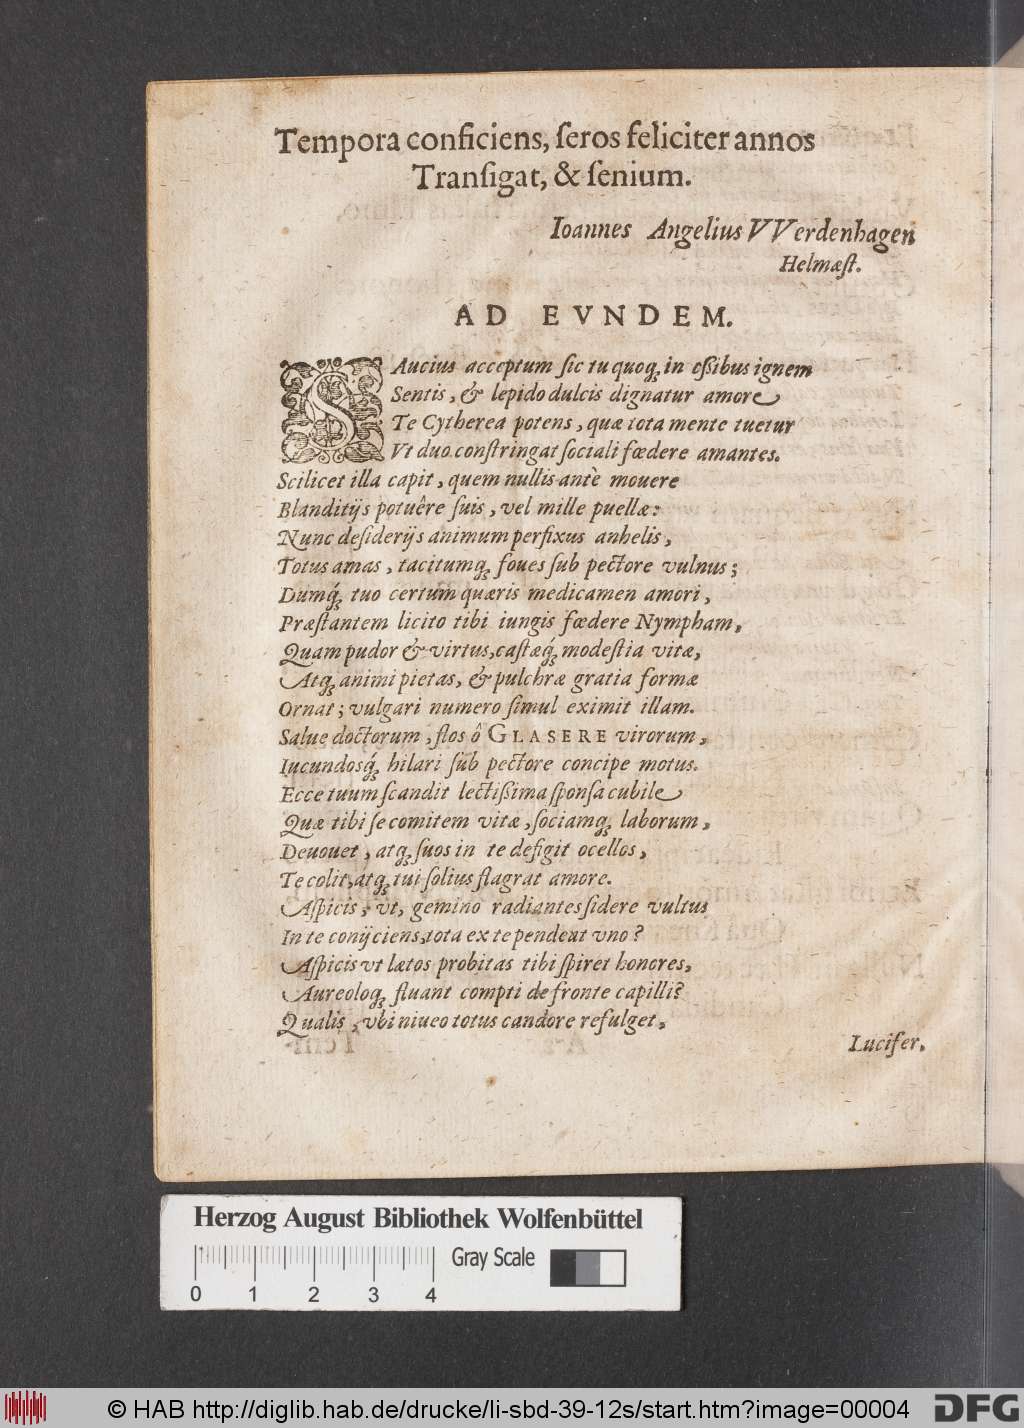 Tempora conficiens, ſeros feliciter annos
Tranſigat, & ſenium.
Ioannes Angelius VVerdenhagen
Helmæſt.
AD EVNDEM.
SAucius acceptum ſic tu quoqꝫ in oſſibus ignem
Sentis, & lepido dulcis dignatur amore
Te Cytherea potens, quæ tota mente tuetur
Vt duo conſtringat ſociali fœdere amantes.
Scilicet illa capit, quem nullis antè mouere
Blanditijs potuêre ſuis, vel mille puellæ:
Nunc deſiderijs animum perfixus anhelis,
Totus amas, tacitumqꝫ foues ſub pectore vulnus;
Dumq́ꝫ tuo certum quæris medicamen amori,
Præſtantem licito tibi iungis fœdere Nympham,
Quam pudor & virtus, caſtæq́ꝫ modeſtia vitæ,
Atqꝫ animi pietas, & pulchræ gratia formæ
Ornat; vulgari numero ſimul eximit illam.
Salue doctorum, flos ô GLASERE virorum,
Iucundosq́ꝫ hilari ſub pectore concipe motus.
Ecce tuum ſcandit lectiſſima ſponſa cubile
Quæ tibi ſe comitem vitæ, ſociamqꝫ laborum,
Deuouet, atqꝫ ſuos in te defigit ocellos,
Te colit, atqꝫ tui ſolius flagrat amore.
Aſpicis, vt, gemino radiantes ſidere vultus
In te conijciens, tota ex te pendeat vno?
Aſpicis vt lætos probitas tibi ſpiret honores,
Aureoloqꝫ fluant compti de fronte capilli?
Qualis, vbi niueo totus candore refulget,
Lucifer,
Herzog August Bibliothek Wolfenbüttel
Gray Scale
0 1 2 3 4
© HAB http://diglib.hab.de/drucke/li-sbd-39-12s/start.htm?image=00004
DFG